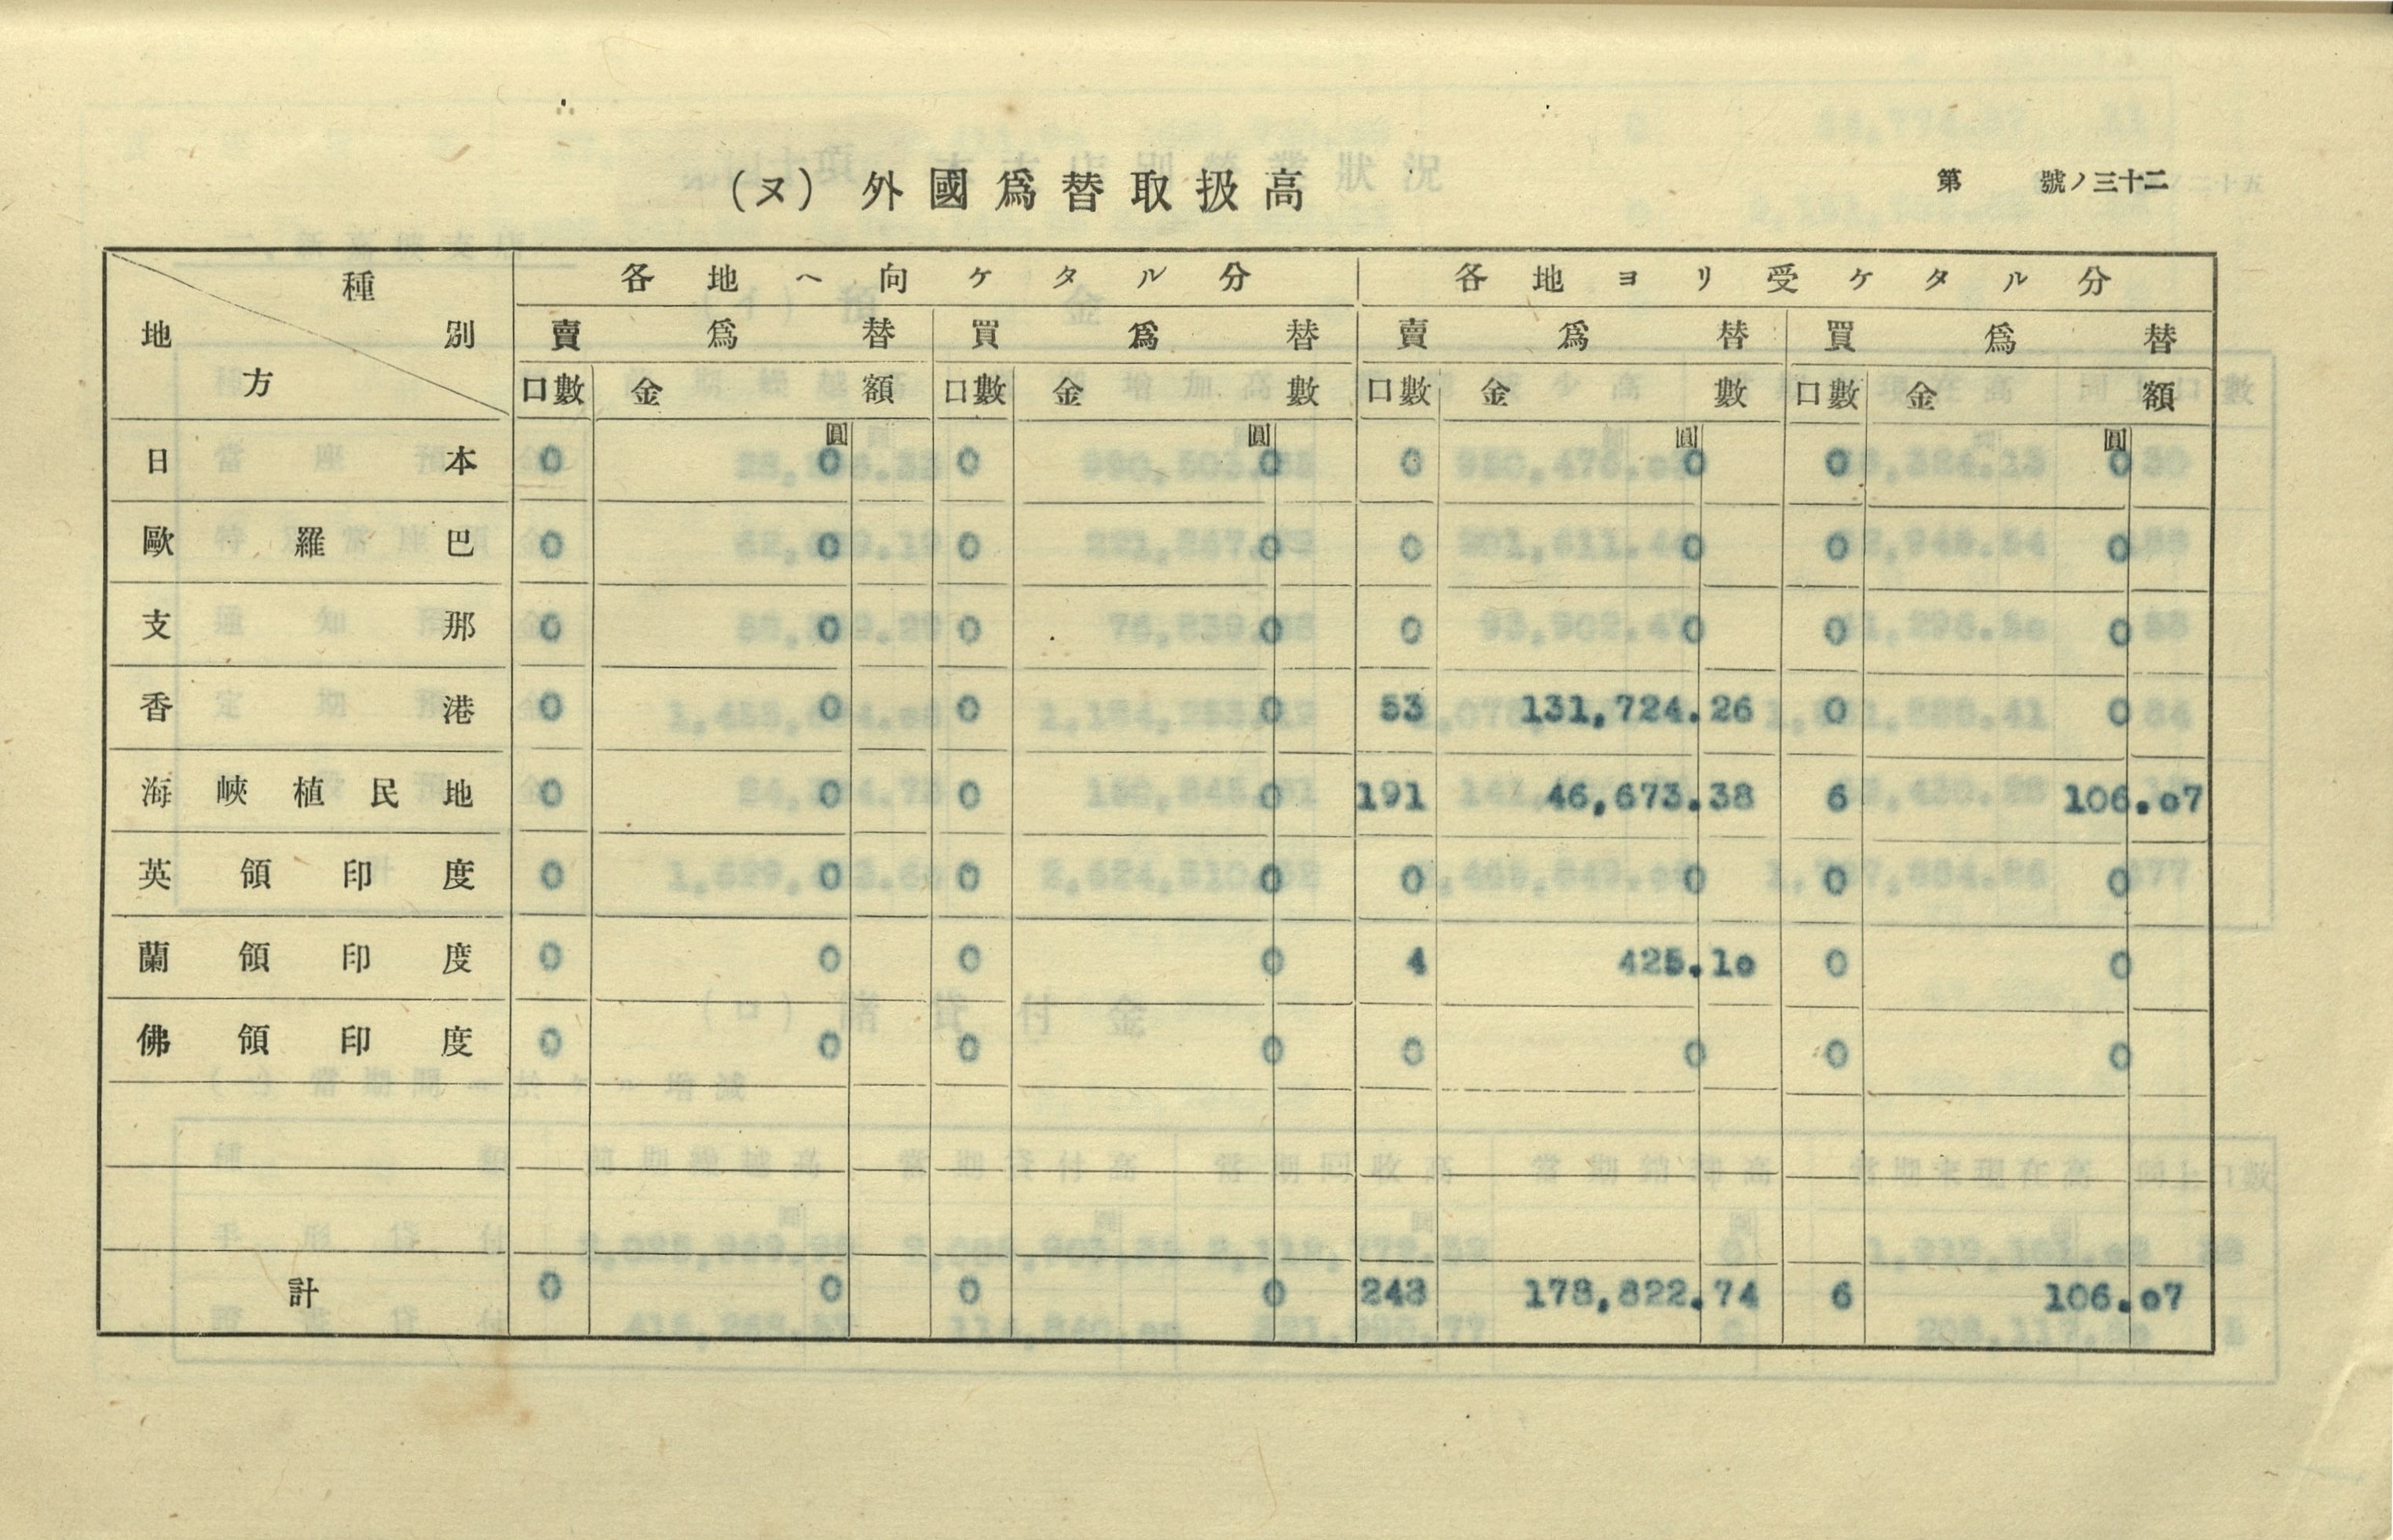 (ヌ) 外國爲替取扱高
第 號ノ三十二
種別 地方
各地ヘ向ケタル分 各地ヨリ受ケタル分
賣爲替 買爲替 賣爲替 買爲替
口數 金額 口數 金數 口數 金數 口數 金額
圓 圓 圓 圓
日本 0 0 0 0 0 0 0 0
歐羅巴 0 0 0 0 0 0 0 0
支那 0 0 0 0 0 0 0 0
香港 0 0 0 0 53 131,724.26 0 0
海峽植民地 0 0 0 0 191 46,673.38 6 106.07
英領印度 0 0 0 0 0 0 0 0
蘭領印度 0 0 0 0 4 425.10 0 0
佛領印度 0 0 0 0 0 0 0 0
計 0 0 0 0 248 178,822.74 6 106.07